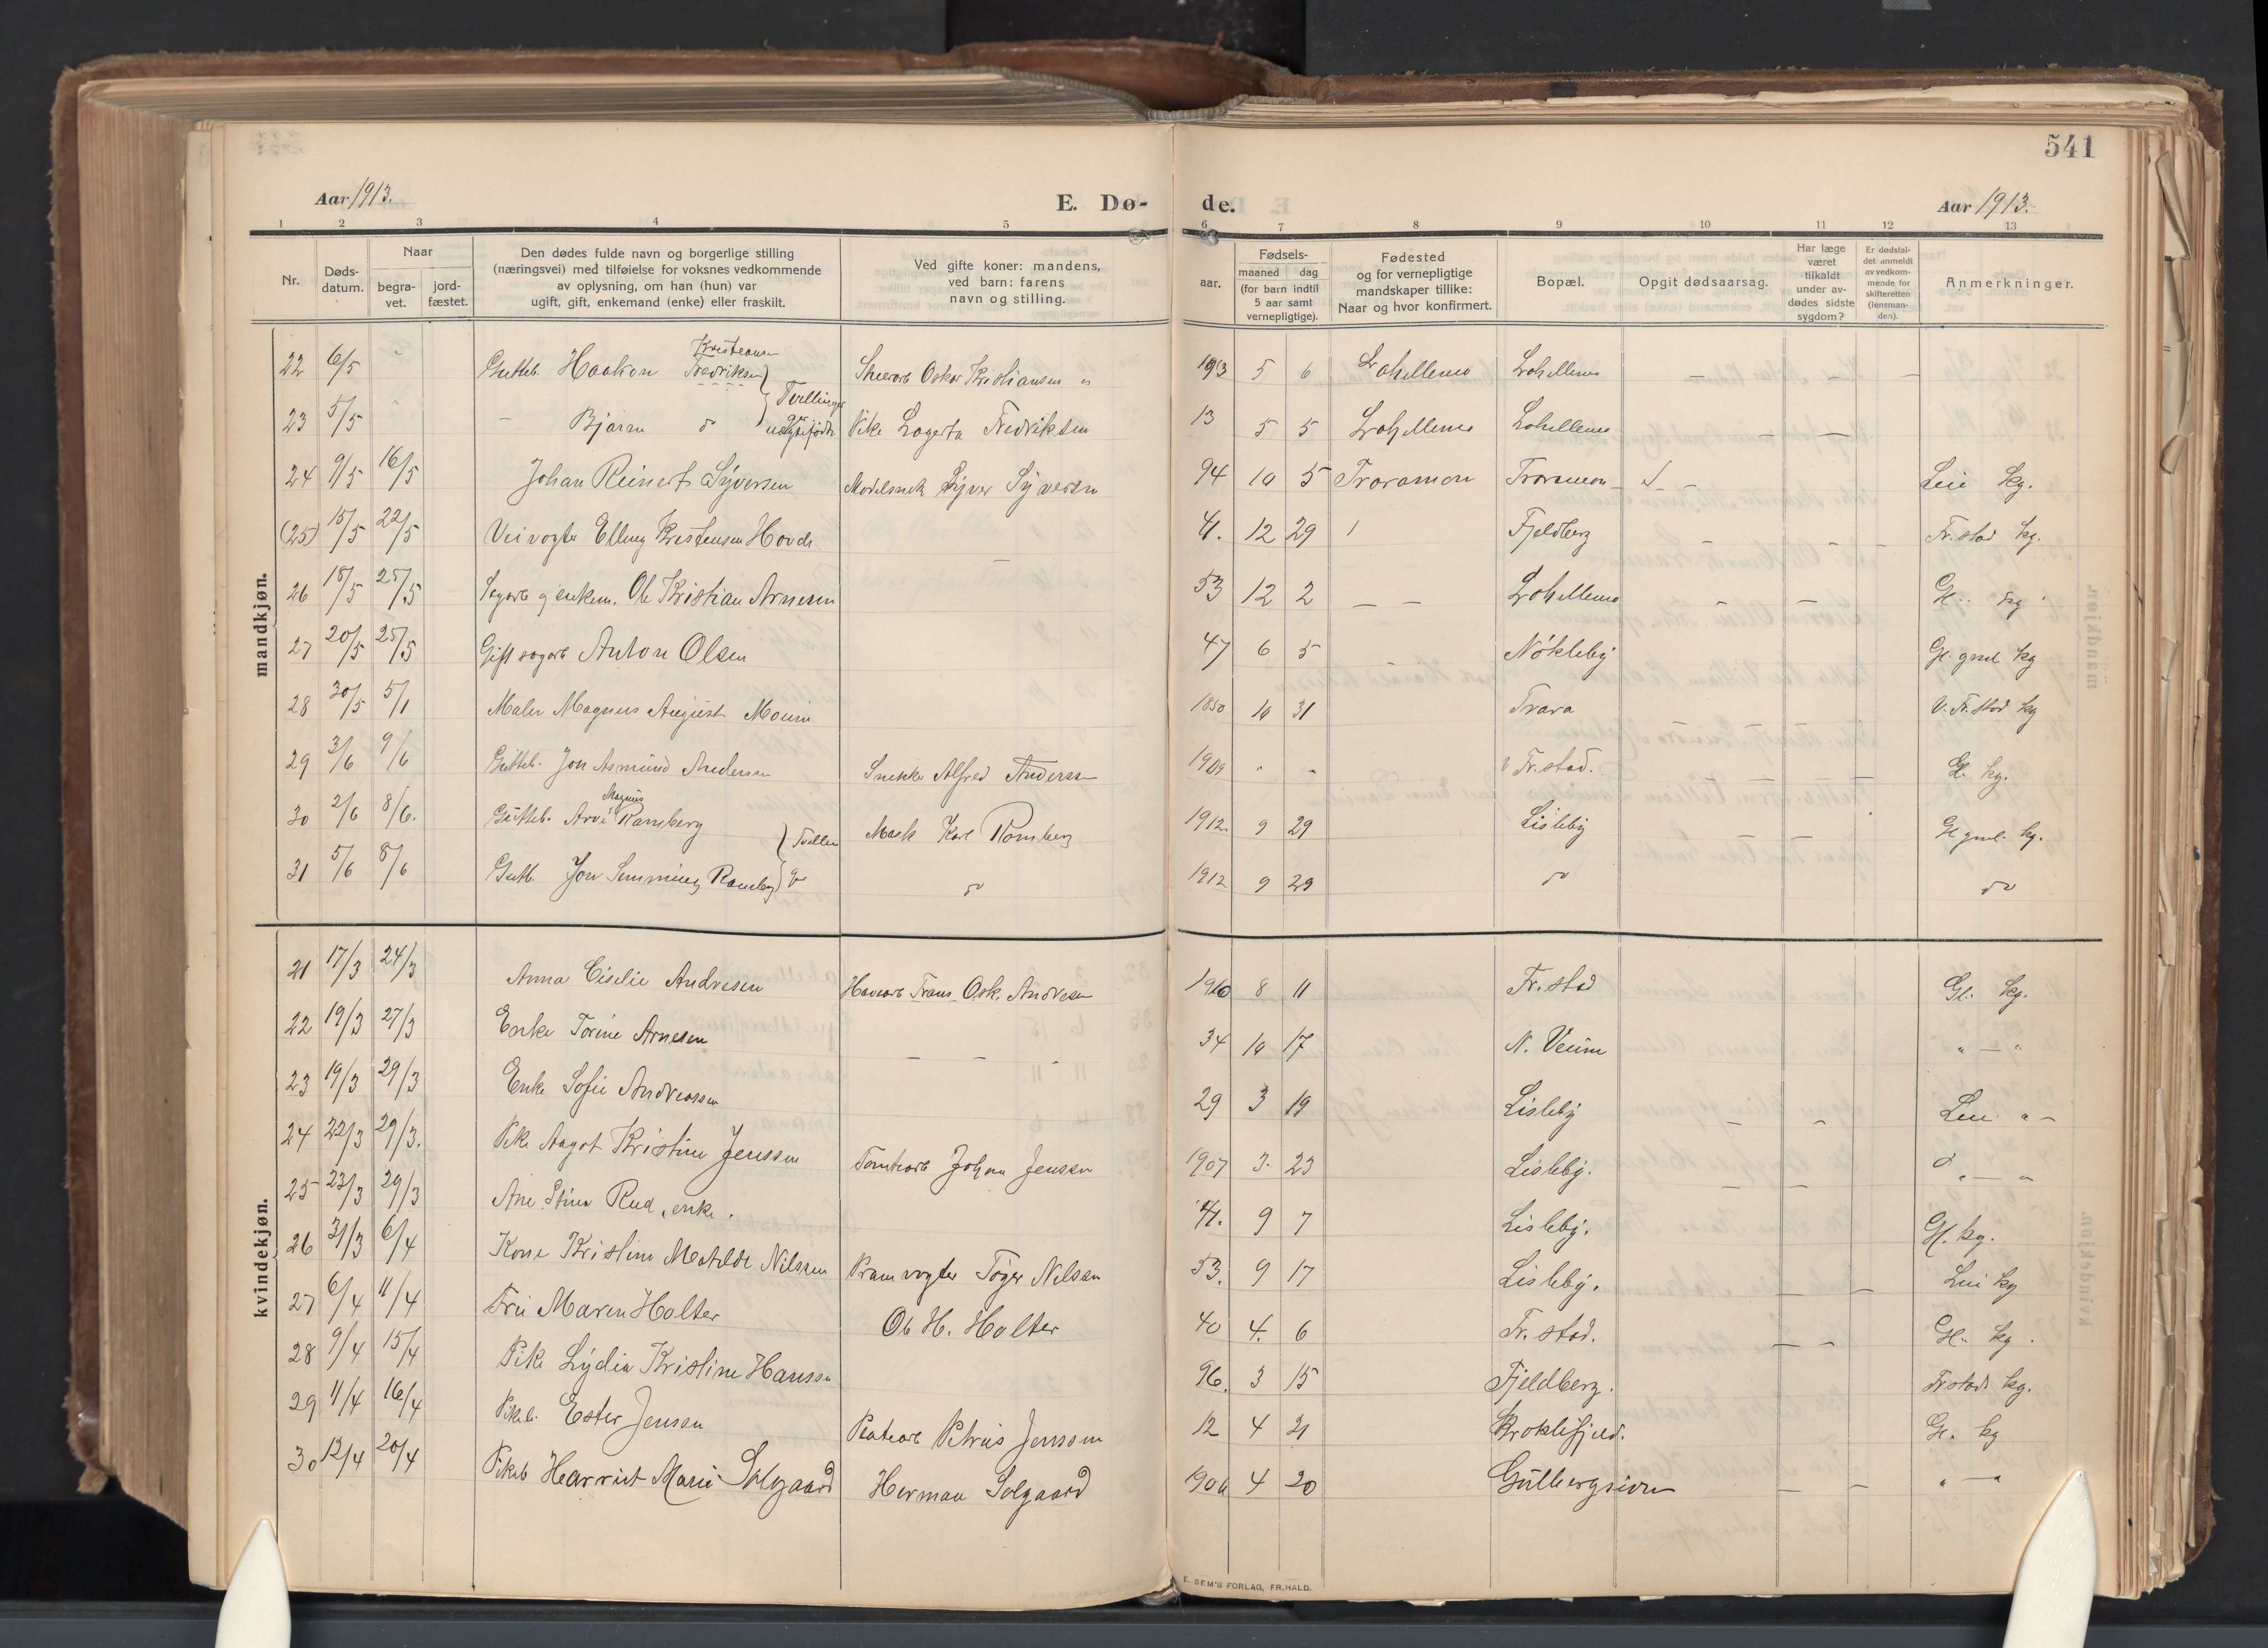 541
Aar 1913. E. Dø- de. Aar 1913.
1 2 3 4 5 6 7 8 9 10 11 12 13
Nr. Døds-datum. Naar begra-vet. jord-fæstet. Den dødes fulde navn og borgerlige stilling (næringsvei) med tilføielse for voksnes vedkommende av oplysning, om han (hun) var ugift, gift, enkemand (enke) eller fraskilt. Ved gifte koner: mandens, ved barn: farens navn og stilling. Fødsels- aar. maaned dag (for barn indtil 5 aar samt vernepligtige). Fødested og for vernepligtige mandskaper tillike: Naar og hvor konfirmert. Bopæl. Opgit dødsaarsag. Har læge været tilkaldt under av-dødes sidste sygdom? Er dødsfal-det anmeldt av vedkom-mende for skifteretten (lensman-den). Anmerkninger.
mandkjøn.
Kristiansen
22 6/5 " Gutteb. Haakon Fredriksen Oskar Kristiansen 1913 5 6 — — —
Tvillinger
23 5/5 " — Bjarne do Pike Lagerta Fredriksen 13 5 5 — —
24 9/5 16/5 Johan Reinert Syversen Syver Syversen 94 10 5 Traramoen Traramoen
(25) 15/5 22/5 Veivogter Elling Kristensen Hovde — 41. 12 29 Fjeldberg — — — Fr.stad kg.
26 18/5 25/5 Sagarb og enkem. Ole Kristian Arnesen 53 12 2 — — — — Gl. kg.
27 20/5 25/5 Gift sagarb Anton Olsen 47 6 5 — Nökleby Gl. gml kg
28 30/5 5/1 Maler Magnus August Moum 1850 10 31 Trara V. Fr.stad kg
29 3/6 9/6 Gutteb. Jon Asmund Andersen Snekker Alfred Andersen 1909 " " V Fr.stad. Gl. kg.
Magnus
30 2/6 8/6. Gutteb. Arvi Ramberg Mask Karl Ramberg 1912. 9 29 Lisleby — — Gl gml. kg.
31 5/6 8/6 Gutb. Jon Ramberg do 1912 9 29 do do
kvindekjøn.
21 17/3 24/3 Anna Cisilie Andresen Havnearb Frans Osk. Andresen 1910 8 11 Fr.stad Gl. kg.
22 19/3 27/3 Enke Torine Arnesen — — - 34 10 17 N. Veum " — "
23 19/3 29/3 Enke Sofie Andreassen 29 3 19 Lisleby — — Leie " —
24 22/3 29/3. Pike Aagot Kristine Jenssen Tomtearb Johan Jenssen 1907 3. 23 Lisleby. — — " — "
25 23/3 29/3 Ane Stina Rud, enke. 41. 9 7 Lisleby. Gl. kg.
26 31/3 6/4 Kone Kristine Matilde Nilssen Pramvogter Töger Nilssen 53. 9 17 Lisleby. — — Leie kg
27 6/4 11/4 Fru Maren Holter Ole H. Holter 40 4. 6 Fr. stad. — — Gl. kg.
28 9/4 15/4 Pike Lydia Kristine Hanssen 96. 3 15 Fjeldberg. Fr.stad kg.
29 11/4 16/4 Pikeb. Ester Jensen Petrus Jenssen 12 4 21 Gl. kg
30 12/4 20/4 Pikeb Harriet Marie Solgaard Herman Solgaard 4 20 — — " — "
E. SEM'S FORLAG, FR.HALD.